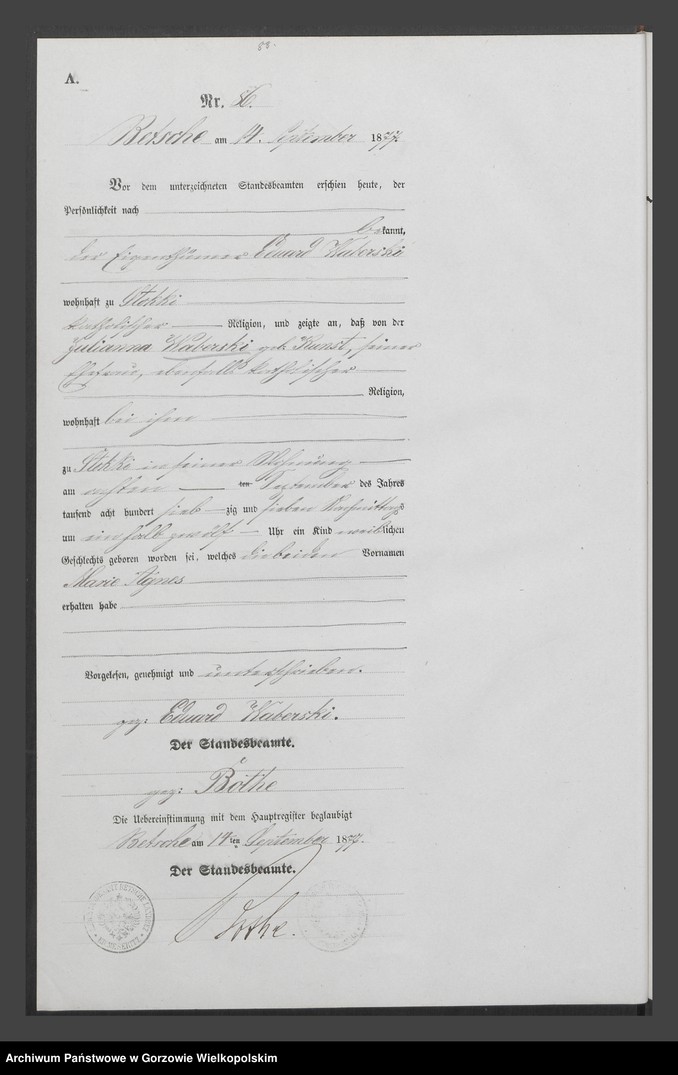 A.
Nr. 86.
Betsche am 14. September 1877.
Vor dem unterzeichneten Standesbeamten erschien heute, der
Persönlichkeit nach
bekannt,
der Eigenthümer Eduard Waberski
wohnhaft zu Stokki
katholischer Religion, und zeigte an, daß von der
Julianna Waberski geb. Kunst, seiner
Ehefrau, ebenfalls katholischer
Religion,
wohnhaft bei ihm
zu Stokki in seiner Wohnung
am achten ten September des Jahres
tausend acht hundert sieb zig und sieben Nachmittags
um ein halb zwölf Uhr ein Kind weiblichen
Geschlechts geboren worden sei, welches die beiden Vornamen
Marie Agnes
erhalten habe
Vorgelesen, genehmigt und unterschrieben.
gez: Eduard Waberski.
Der Standesbeamte.
gez: Böthe
Die Uebereinstimmung mit dem Hauptregister beglaubigt
Betsche am 14ten September 1877.
Der Standesbeamte.
Böthe.
Archiwum Państwowe w Gorzowie Wielkopolskim